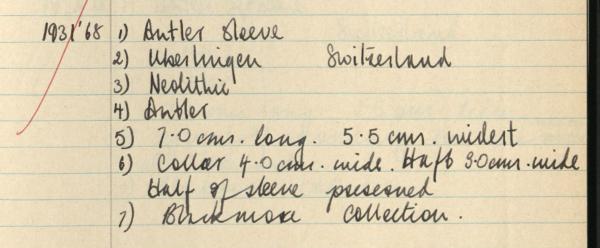 1931'68 1) Antler Sleeve
2) Uberlingen Switzerland
3) Neolithic
4) Antler
5) 7.0 cms. long. 5.5 cms. widest
6) Collar 4.0 cms. wide. Haft 3.0 cms. wide
Half of sleeve preserved
7) Blackmore Collection.